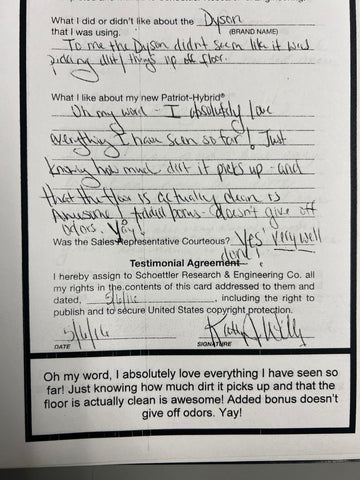 What I did or didn't like about the Dyson
that I was using. (BRAND NAME)
To me the Dyson didn't seem like it was
picking dirt/things up off floor.
What I like about my new Patriot-Hybrid®
Oh my word - I absolutely love
everything I have seen so far! Just
knowing how much dirt it picks up - and
that the floor is actually clean is
Awesome! Added bonus - doesn't give off
odors. Yay!
Was the Sales Representative Courteous? Yes! very well
done!
Testimonial Agreement
I hereby assign to Schoettler Research & Engineering Co. all
my rights in the contents of this card addressed to them and
dated, 5/6/16, including the right to
publish and to secure United States copyright protection.
5/6/16 Kathy
DATE SIGNATURE
Oh my word, I absolutely love everything I have seen so
far! Just knowing how much dirt it picks up and that the
floor is actually clean is awesome! Added bonus doesn't
give off odors. Yay!